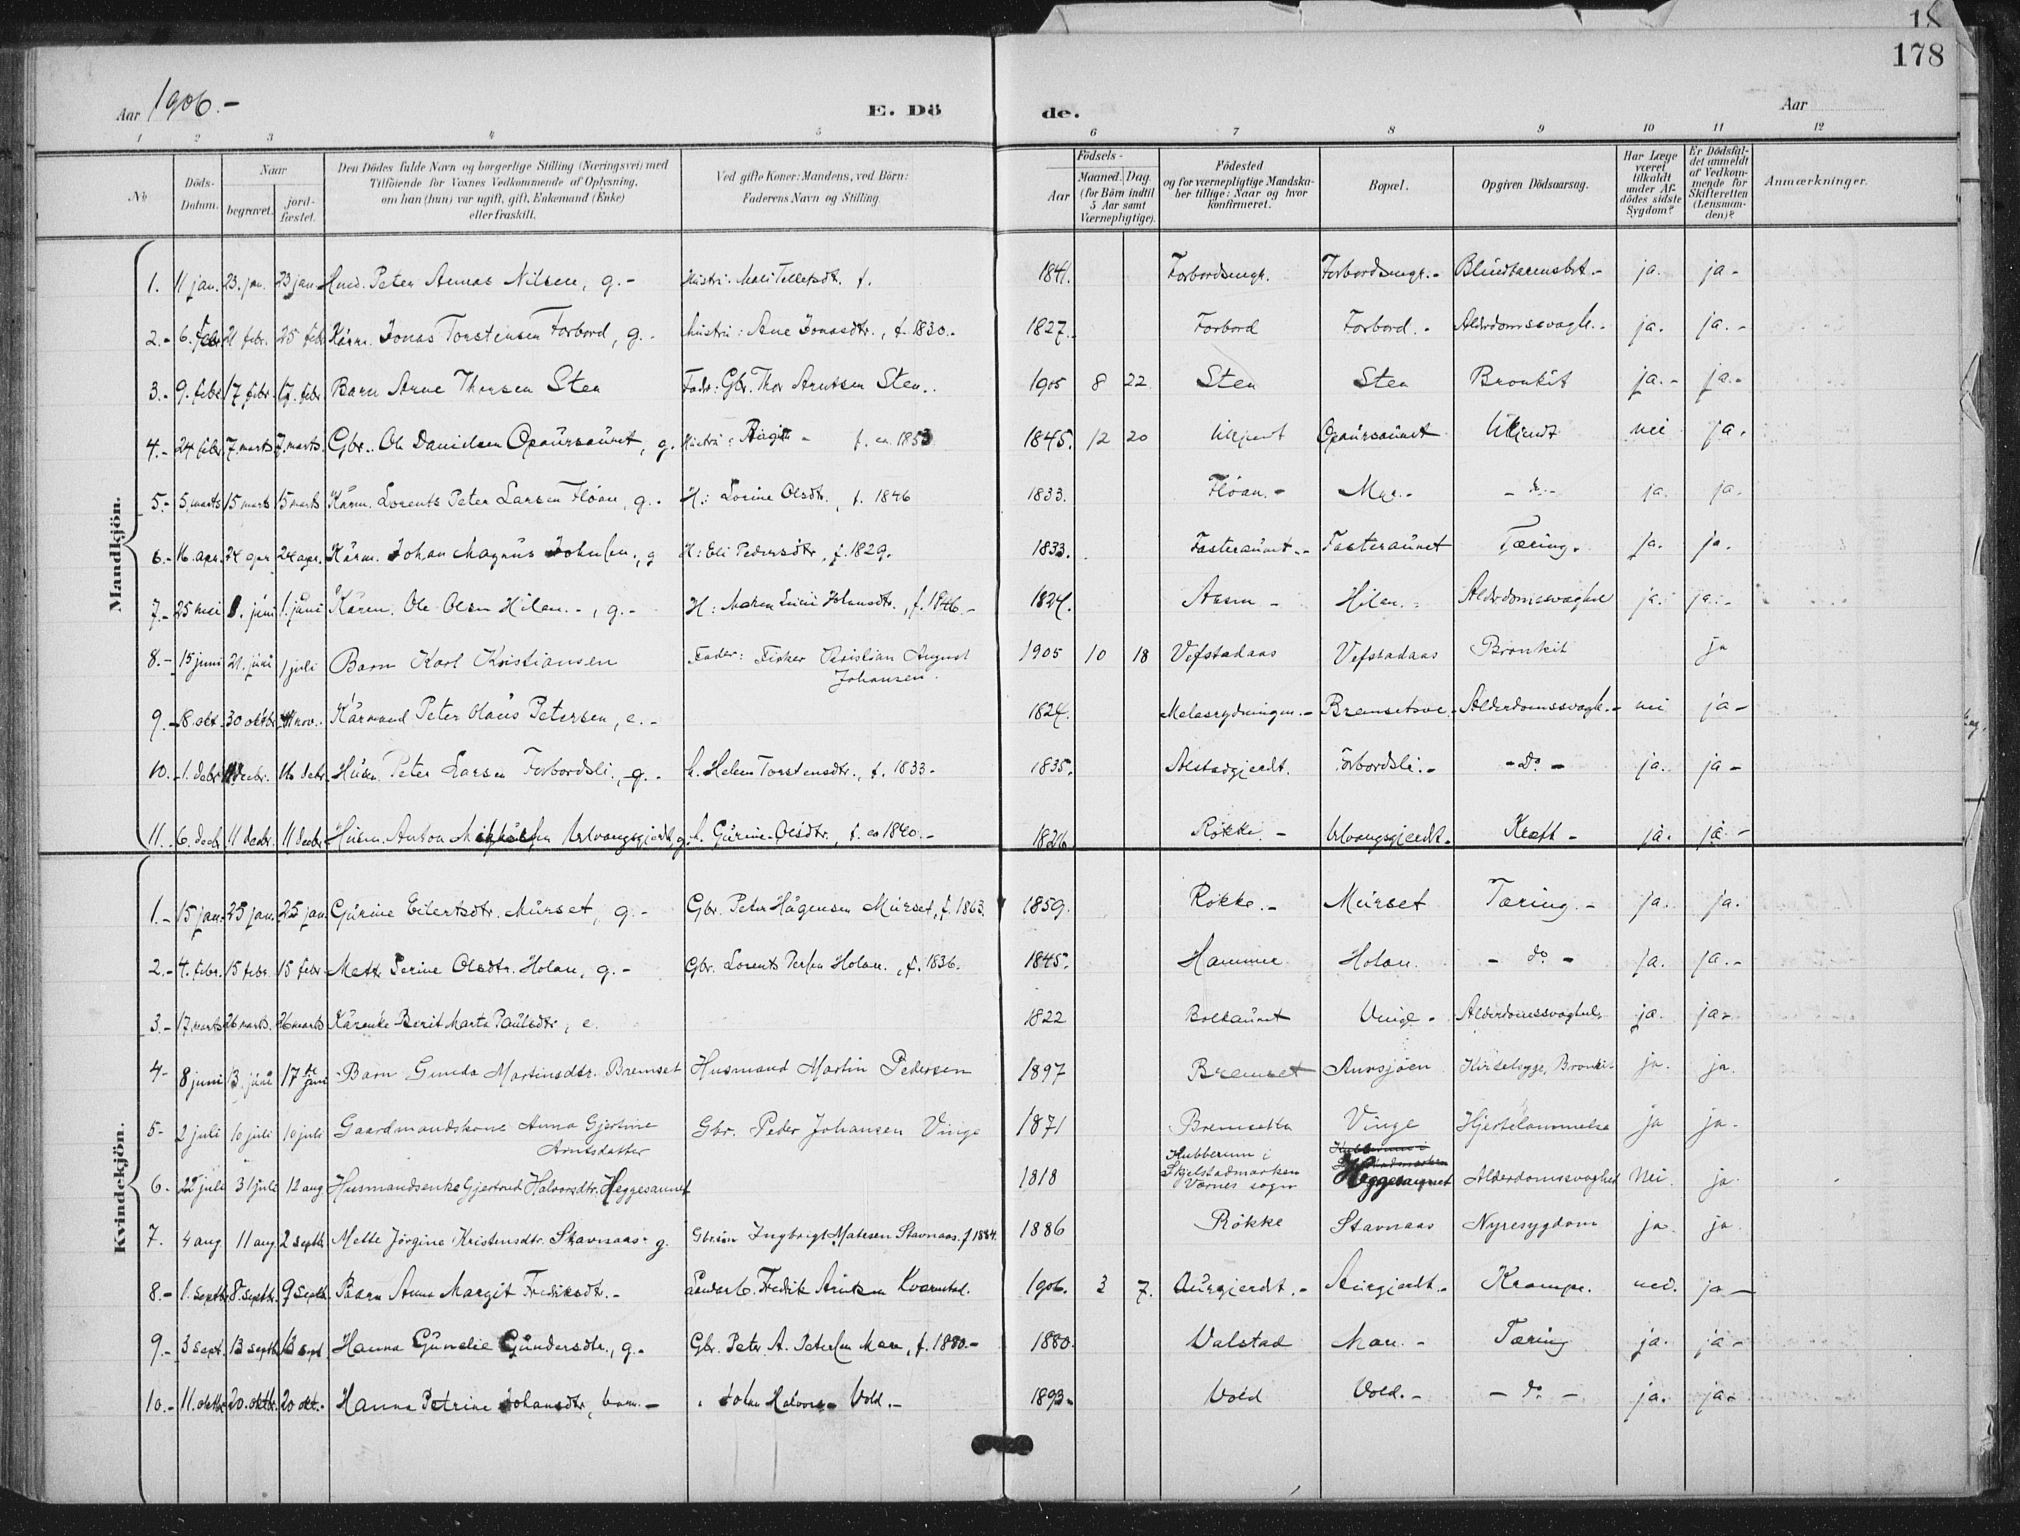 18
178
Aar 1906.-
E. Dö
de.
Aar
1 2 3 4 5 6 7 8 9 10 11 12
No
Döds-Datum.
Naar
begravet.
jord-fæstet.
Den Dödes fulde Navn og borgerlige Stilling (Næringsvei) med
Tilföiende for Voxnes Vedkommende af Oplysning,
om han (hun) var ugift, gift, Enkemand (Enke)
eller fraskilt.
Ved gifte Koner: Mandens, ved Börn:
Faderens Navn og Stilling
Födsels-
Aar
Maaned. Dag.
(for Börn indtil
5 Aar samt
Værnepligtige).
Födested
og for værnepligtige Mandska-
ber tillige: Naar og hvor
konfirmeret.
Bopæl.
Opgiven Dödsaarsag.
Har Læge
været
tilkaldt
under Af-
dödes sidste
Sygdom?
Er Dödsfal-
det anmeldt
af Vedkom-
mende for
Skifteretten
(Lensman-
den)?
Anmærkninger.
Mandkjön.
1. 11 jan. 23. jan. 23 jan. Peter Nilsen, g. - Hustri: f. 1841. Forbordsengr. Forbordsengr. - ja. ja -
2. - 6. febr. 21 febr. 25 febr Kårm. Jonas Torstensen Forbord, g. - Hustru: Ane Jonasdtr., f. 1830. - 1827. Forbord Forbord. - Alderdomssvagh. - ja. ja. -
3. - 9. febr. 17 febr. 17. febr Barn Arne Thorsen Sten Fader: Gbr. Thor Arntsen Sten. 1905 8 22 Sten Sten Bronkit ja. - ja. -
4. - 24 febr. 7. marts 7. marts. Gbr. Ole Danielsen Opaursaunet, g. Hustri: f. ca. 1853 1845. 12 20 Ukjent Opaursaunet Ukjendt nei ja.
5. - 5. marts 15 marts 15 marts Kårm. Lorents Peter Larsen Flöan, g. - H.: Lorine Olsdtr., f. 1846 1833. Flöan. - Myr. - - do. - ja. ja.
6. - 16. apr. 24 apr. 24 apr. Kårm. Johan Magnus Johnsen, g H: Eli Pedersdtr., f. 1829. 1833. Fasteraunet. - Fasteraunet Tæring. ja. ja.
7. - 25 mai 1. juni 1. juni Kårm. Ole Olsen Hilan. -, g. - H: Maren f. 1846. - 1824. Aasen - Hilan. - Alderdomssvaghed ja. ja. -
8. - 15 juni 21. juni 1 juli Barn Karl Kristiansen Fader: Fisker Kristian August
Johansen. 1905 10 18 Vefstadaas Vefstadaas Bronkit ja
9. - 8. okt. 30 oktbr. nov. Kårmand Peter Olaus Petersen, e. - 1824. - Alderdomssvagh. - nei ja -
10. - 1. debr. debr. 16 debr. Husm. Peter Larsen Forbordsli, g. - h. Helen Torstensdtr., f. 1833. - 1835. Alstadgjerdt. Forbordsli. - - do - ja. ja -
11. 6. decbr. 11 decbr. 11 decbr. Husm. Anton g. h. Gurine Olsdtr., f. ca 1840. - 1826. Røkke. - Kræft - ja. ja -
Kvindekjön.
1. - 15 jan. 25 jan. 25 jan. Gurine Eilertsdtr. Murset, g. - Gbr. Peter Hågensen Murset, f. 1863. 1859. Røkke. - Murset Tæring. - ja. ja.
2. - 4. febr. 15 febr. 15 febr. Mette Perine Olsdtr. Holan, g. - Gbr. Lorents Holan., f. 1836. 1845. Hammer Holan. - do - ja. ja. -
3. - 17. marts 26 marts. 26 marts Kårenke Berit Marta Paulsdtr., e. 1822 Vinge. - Alderdomssvaghed ja. ja -
4 - 8 juni 13. juni 17 de juni Barn Gunda Martinsdtr. Bremset Husmand Martin Pedersen 1897 Bremset Aunsjøen Kirtelsyge, Bronkit ja. ja.
5 - 2 juli 10 juli 10 juli Gaardmandskone Anna Gjertine
Arntsdatter Gbr. Peder Johansen Vinge 1871 Bremsetta Vinge Hjertelammelse ja ja.
6. - 22 juli 31 juli 12 aug Husmandsenke Gjertrud Halvorsdtr. Heggesaunet 1818 Kubberum i
Skjelstadmarken
Værnes sogn Heggesaunet Alderdomssvaghed Nei. ja.
7. 4 aug. 11 aug. 2 septb Mette Jørgine Kristensdtr. Stavnaas. g. Ingbrigt Matesen Stavnaas. f 1884. 1886 Røkke Stavnaas Nyresygdom ja. ja.
8. - 1. septbr 8. septbr. 9 septb. Barn Anna Margit Frediksdtr. - Fredrik Kvarnstad. 1906. 3 7. Aurgjerdt. - Aurgjerdt. - Krampe. nei. ja -
9. - 3 sept. 13 septb. 13 sept. Hanna Gunelie Gundersdtr., g. - Gbr. Peter A. Petersen Moen, f. 1880. - 1880. Valstad Moen. - Tæring ja. ja -
10. - 11. oktbr. 20. oktbr. 20 okt. - Hanna Petrine Johansdtr, barn. - Johan Halvors- Vold. - 1893. - Vold Vold. - - do - ja. ja -